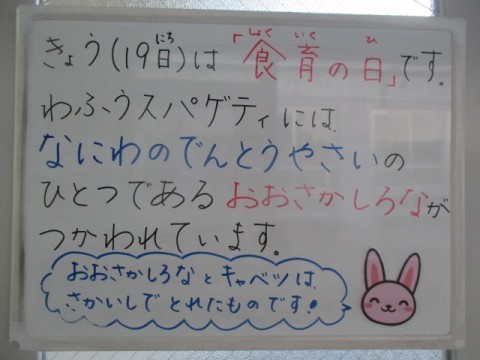 きょう(19日)は「食育の日」です。
わふうスパゲティには、
なにわのでんとうやさいの
ひとつであるおおさかしろなが
つかわれています。
おおさかしろなとキャベツは、
さかいしでとれたものです!